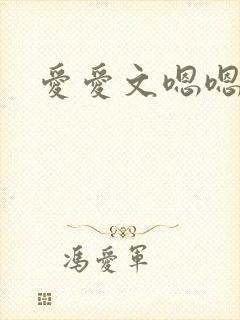 愛愛文嗯嗯
馮愛軍